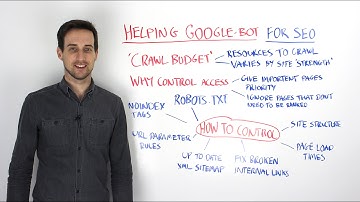 HELPING GOOGLE-BOT FOR SEO
'CRAWL BUDGET'
RESOURCES TO CRAWL
VARIES BY SITE 'STRENGTH'
WHY CONTROL ACCESS
GIVE IMPORTANT PAGES
PRIORITY
IGNORE PAGES THAT DON'T
NEED TO BE RANKED
NOINDEX
TAGS
ROBOTS.TXT
HOW TO CONTROL
SITE STRUCTURE
URL PARAMETER
RULES
UP TO DATE
XML SITEMAP
FIX BROKEN
INTERNAL LINKS
PAGE LOAD
TIMES